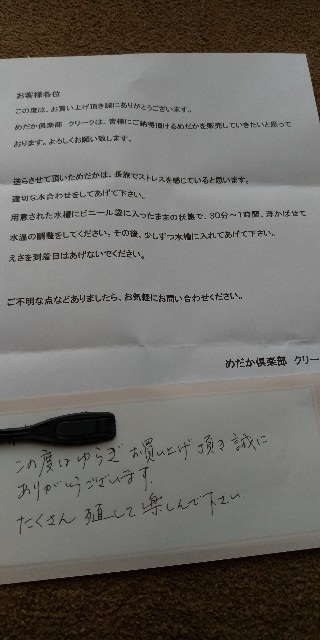 お客様各位
この度は、お買い上げ頂き誠にありがとうございます。
めだか倶楽部 クリークは、皆様にご納得頂けるめだかを販売していきたいと思って
おります。よろしくお願い致します。
送らさせて頂いためだかは、長旅でストレスを感じていると思います。
適切な水合わせをしてあげて下さい。
用意された水槽にビニール袋に入ったままの状態で、30分~1時間、浮かばせて
水温の調整をしてください。その後、少しずつ水槽に入れてあげて下さい。
えさを到着日はあげないでください。
ご不明な点などありましたら、お気軽にお問い合わせください。
めだか倶楽部 クリー
この度はゆらぎお買い上げ頂き誠に
ありがとうございます.
たくさん殖して楽しんで下さい